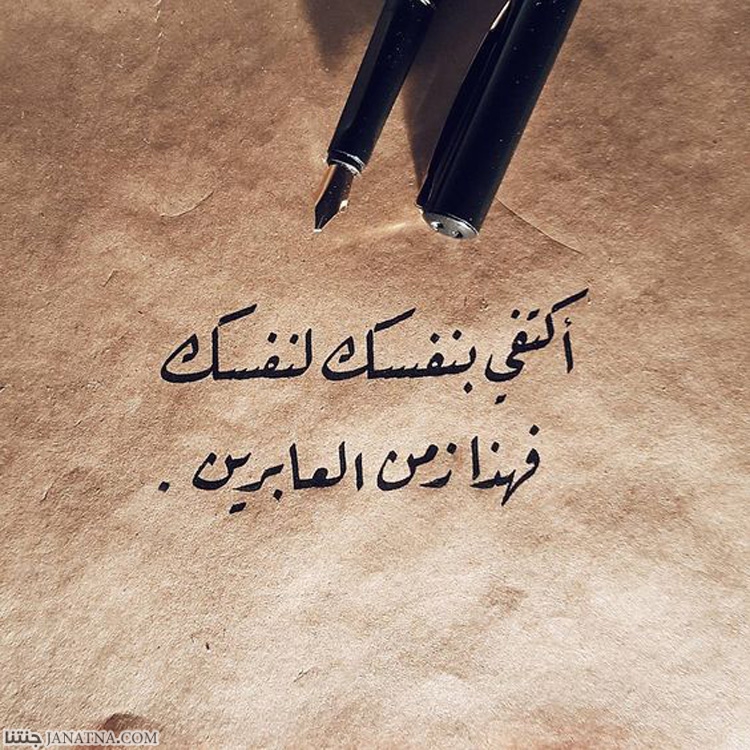 أكتفي بنفسك لنفسك
فهذا زمن العابرين .
جنتنا JANATNA.COM